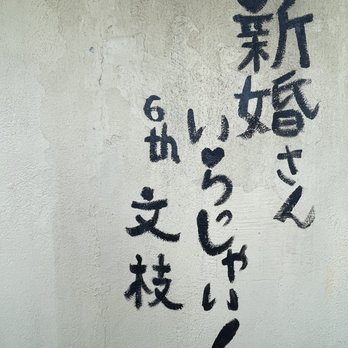 新婚さん
い♥らっじゃい!
6th 文枝